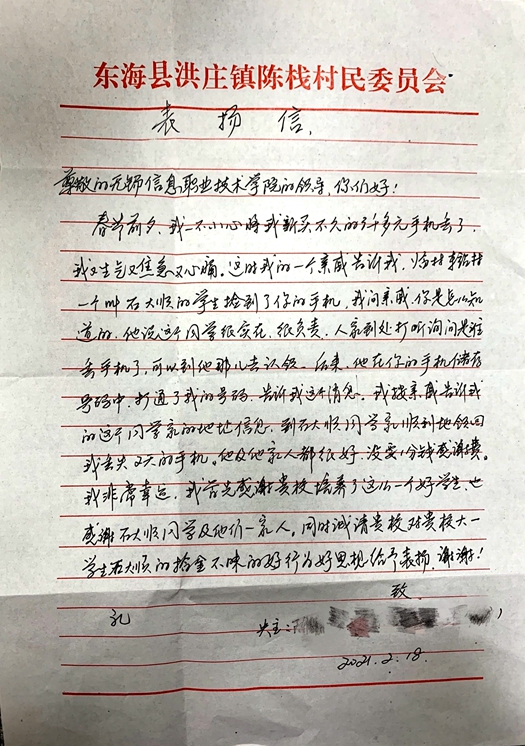 东海县洪庄镇陈栈村民委员会
表扬信
尊敬的无锡信息职业技术学院的领导，你们好！
春节前夕，我一不小心将我新买不久的3千多元手机丢了，
我又生气又焦急又心痛。这时我的一个亲戚告诉我，
一个叫石大顺的学生捡到了你的手机，我问亲戚你是怎么知
道的，他说这个同学很实在，很负责，人家到处打听询问是谁
丢手机了，可以到他那儿去认领。后来，他在你的手机储存
号码中，打通了我的号码，告诉我这个消息。我按亲戚告诉我
的这个同学家的地址信息，到石大顺同学家顺利地领回
我丢失2天的手机。他及他家人都很好，没要1分钱感谢费。
我非常幸运，我首先感谢贵校培养了这么一个好学生，也
感谢石大顺同学及他们一家人。同时诚请贵校对贵校大一
学生石大顺的拾金不昧的好行为好思想给予表扬，谢谢！
致
礼
失主：
2021.2.18